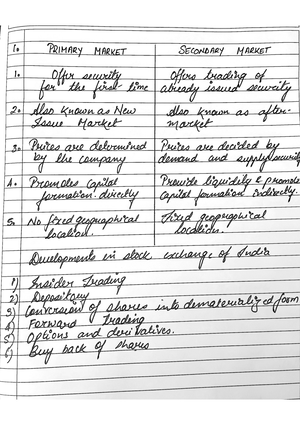 1. PRIMARY MARKET SECONDARY MARKET
1. Offer security Offers trading of
for the first time already issued security
2. Also known as New Also known as after-
Issue Market market
3. Prices are determined Prices are decided by
by the company demand and supply security
4. Promotes capital Provide liquidity & promote
formation directly capital formation indirectly.
5. No fixed geographical Fixed geographical
location. location.
Developments in stock exchange of India
1) Insider Trading
2) Depository
3) Conversion of shares into dematerialized form
4) Forward Trading
5) Options and derivatives.
6) Buy back of shares